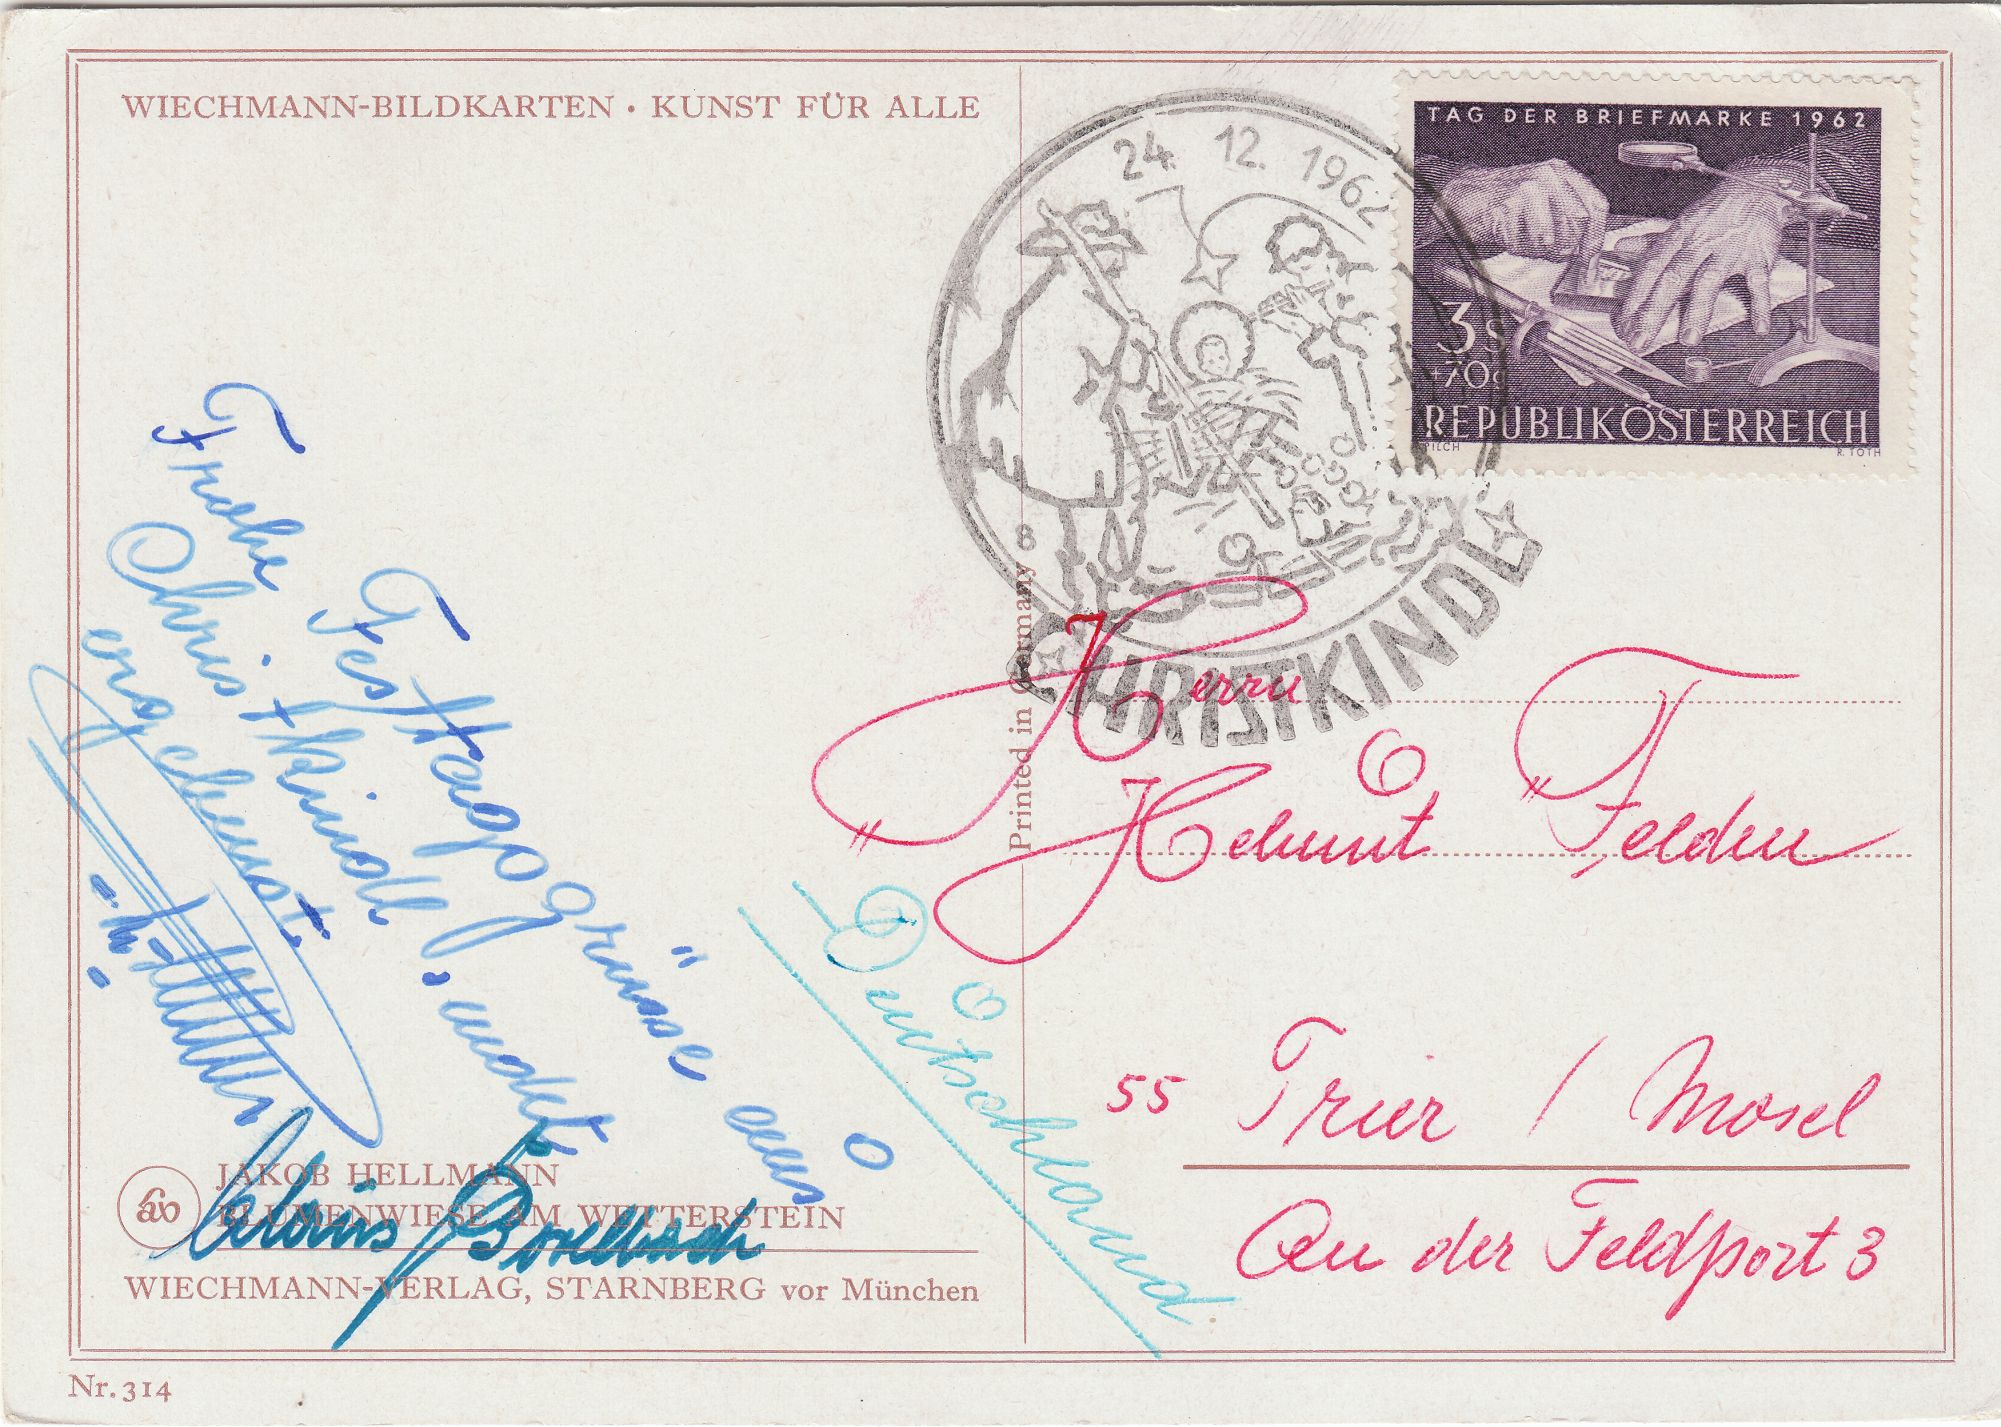 WIECHMANN-BILDKARTEN · KUNST FÜR ALLE
Frohe Festtagsgrüsse aus
Christkindl, sendet
ergebenst
JAKOB HELLMANN
BLUMENWIESE AM WETTERSTEIN
WIECHMANN-VERLAG, STARNBERG vor München
Nr. 314
Printed in Germany 8
24. 12. 1962
CHRISTKINDL
TAG DER BRIEFMARKE 1962
3 S
+70g
REPUBLIK ÖSTERREICH
PILCH
R. TOTH
Herrn
Helmut Felden
Deutschland
55 Trier / Mosel
An der Feldport 3